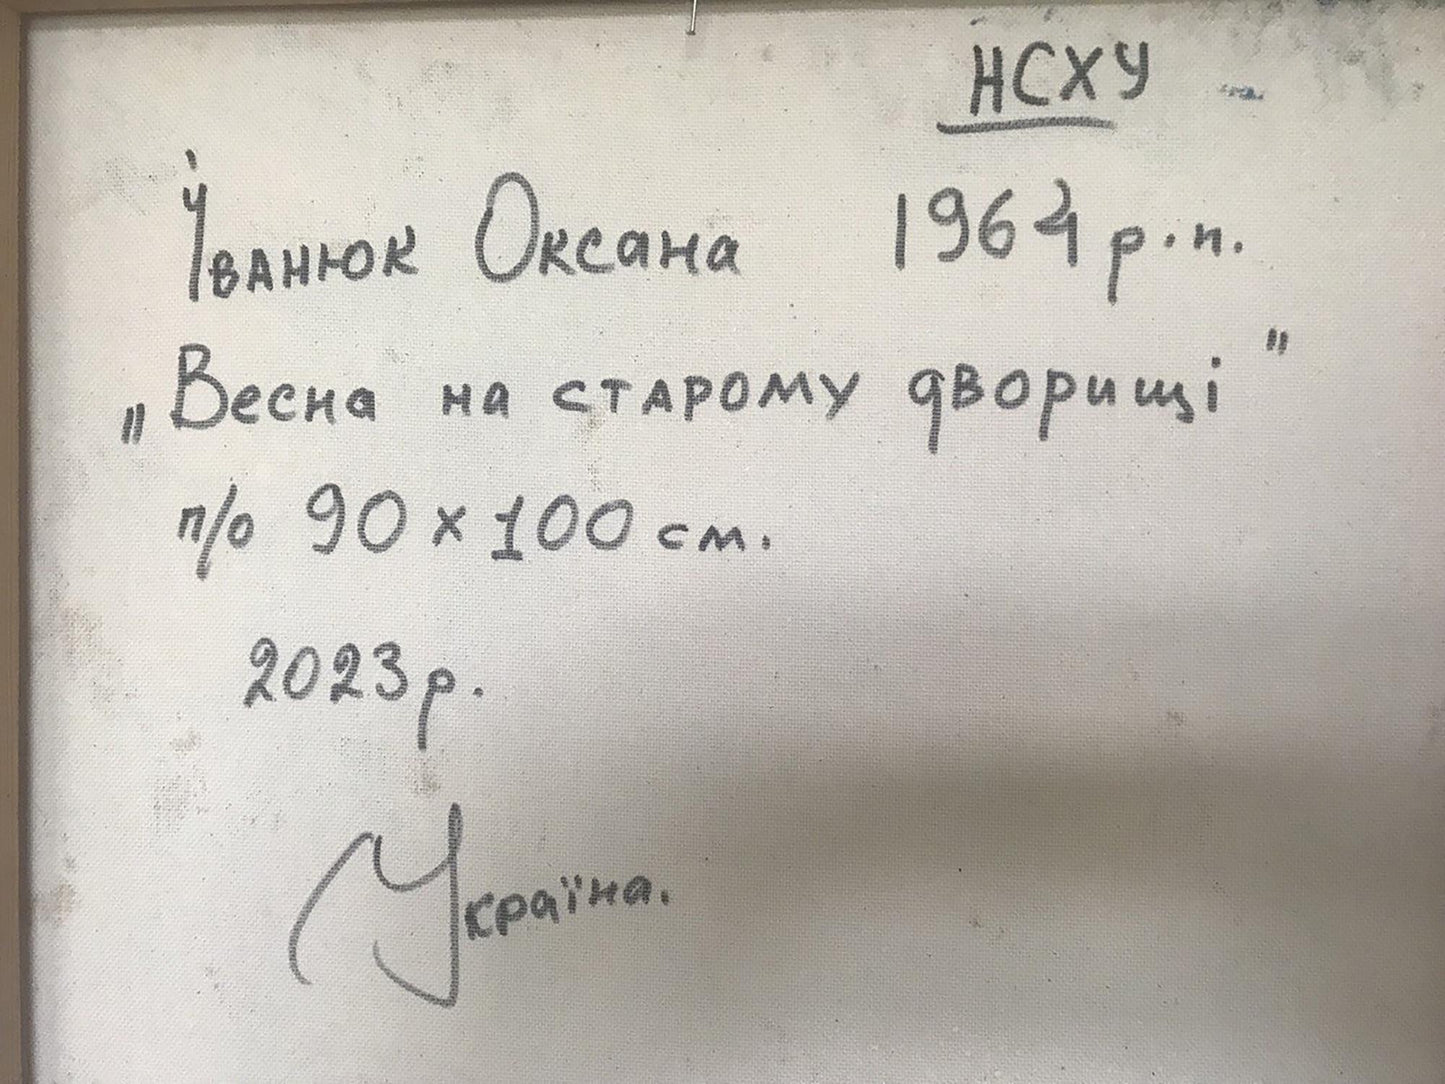 НСХУ
Іванюк Оксана 1964 р.н.
„Весна на старому дворищі"
п/о 90 х 100 см.
2023 р.
Україна.